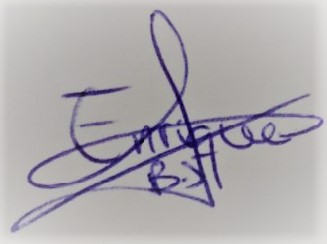 Enrique
B.